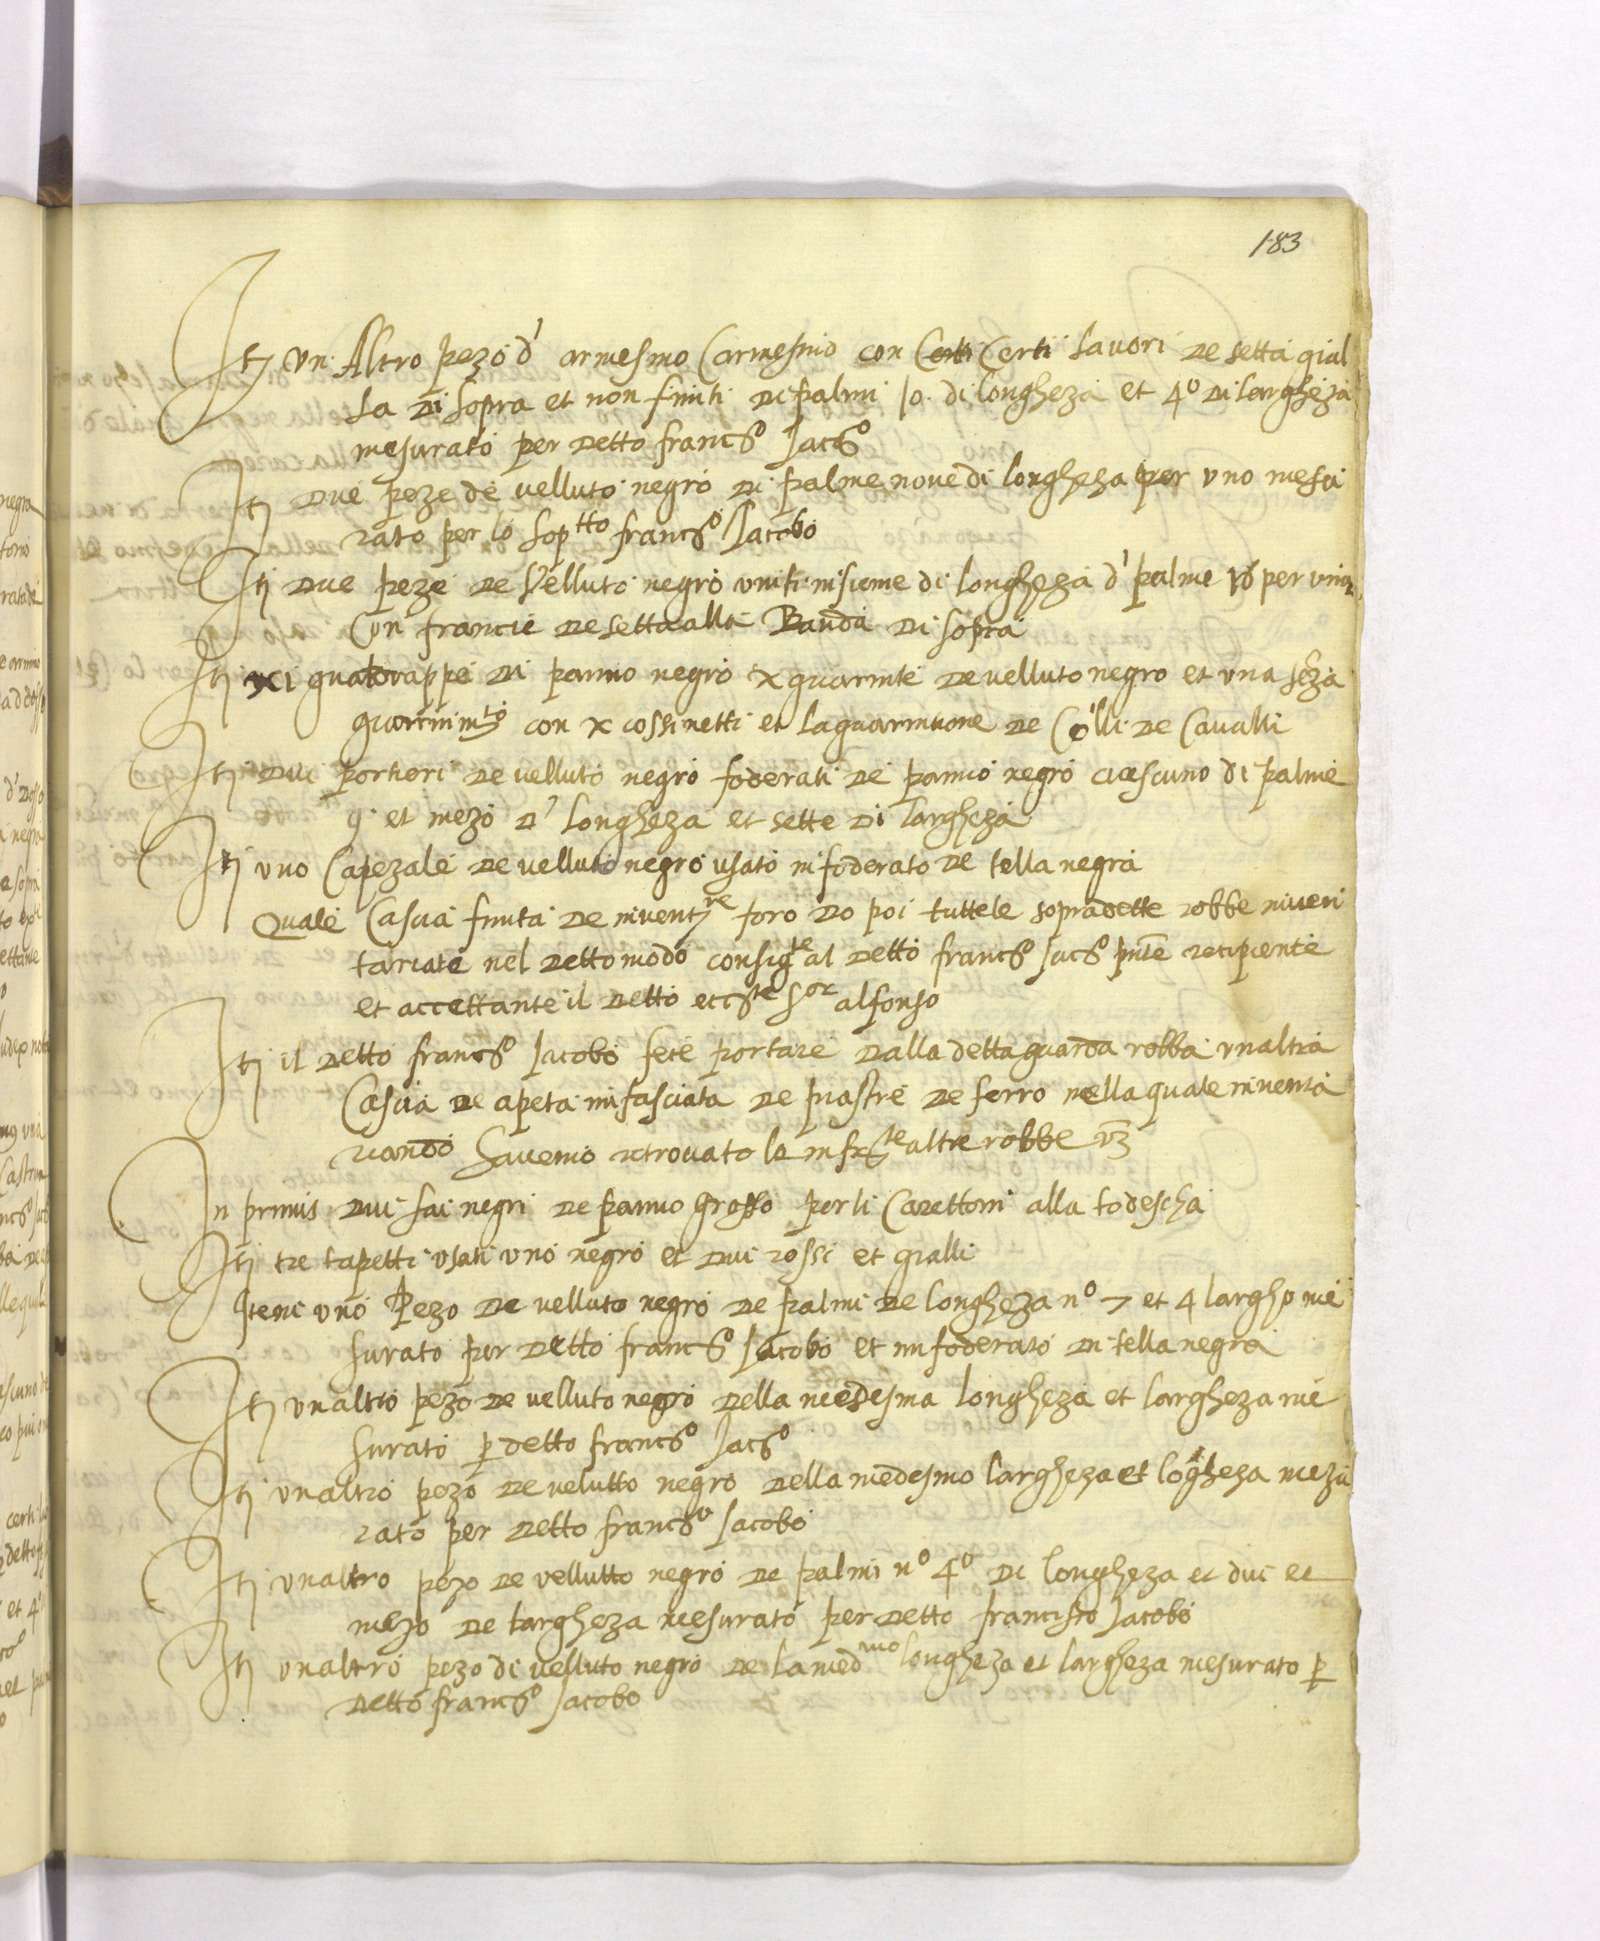 183
It͂ un Altro pezo d' armesino Carmesino con Certi Certi lavori de setta gial
la di sopra et non finiti di palmi 10. di longheza et 4º di largheza
mesurato per detto francº Jacº
It͂ due peze de velluto negro di palme nove di longheza per uno mesu
rato per lo soptto francº Jacobo
It͂ due peze de Velluto negro uniti insieme di longheza d' palme 10 per una
Con francie de setta alla Banda di sopra
It͂ xi gualtrappe di panno negro x guarnite de velluto negro et una seza
guarnimto con x cossinetti et la guarnitione de Colli de Cavalli
It͂ dui portieri de velluto negro foderati de panno negro ciascuno di palme
9 et mezo d' longheza et sette di largheza
It͂ uno Capezale de velluto negro usato infoderato de tella negra
Quale Cascia finita de inventre foro do poi tutte le sopradette robbe inven
tariate nel detto modo consigte al detto francº Jacº pnte recipiente
et accettante il detto eccte Sor alfonso
It͂ il detto francº Jacobo fece portare dalla detta guarda robba unaltra
Cascia de apeta infasciata de piastre de ferro nella quale inventa
riando havemo retrovato le infrte altre robbe vz
In primis dui sai negri de panno grosso per li Carettoni alla todescha
It͂ tre tapetti usati uno negro et dui rossi et gialli
Item uno Pezo de velluto negro de palmi de longheza nº 7 et 4 largho me
surato per detto francº Jacobo et infoderato di tella negra
It͂ unaltro pezo de velluto negro della medesma longheza et largheza me
surato p detto francº Jacº
It͂ unaltro pezo de velutto negro della medesmo largheza et logheza mezu
rato per detto francº Jacobo
It͂ unaltro pezo de vellutto negro de palmi nº 4º di longheza et dui et
mezo de largheza mesurato per detto francisco Jacobo
It͂ unaltro pezo di velluto negro de la medmo longheza et largheza mesurato p
detto francº Jacobo